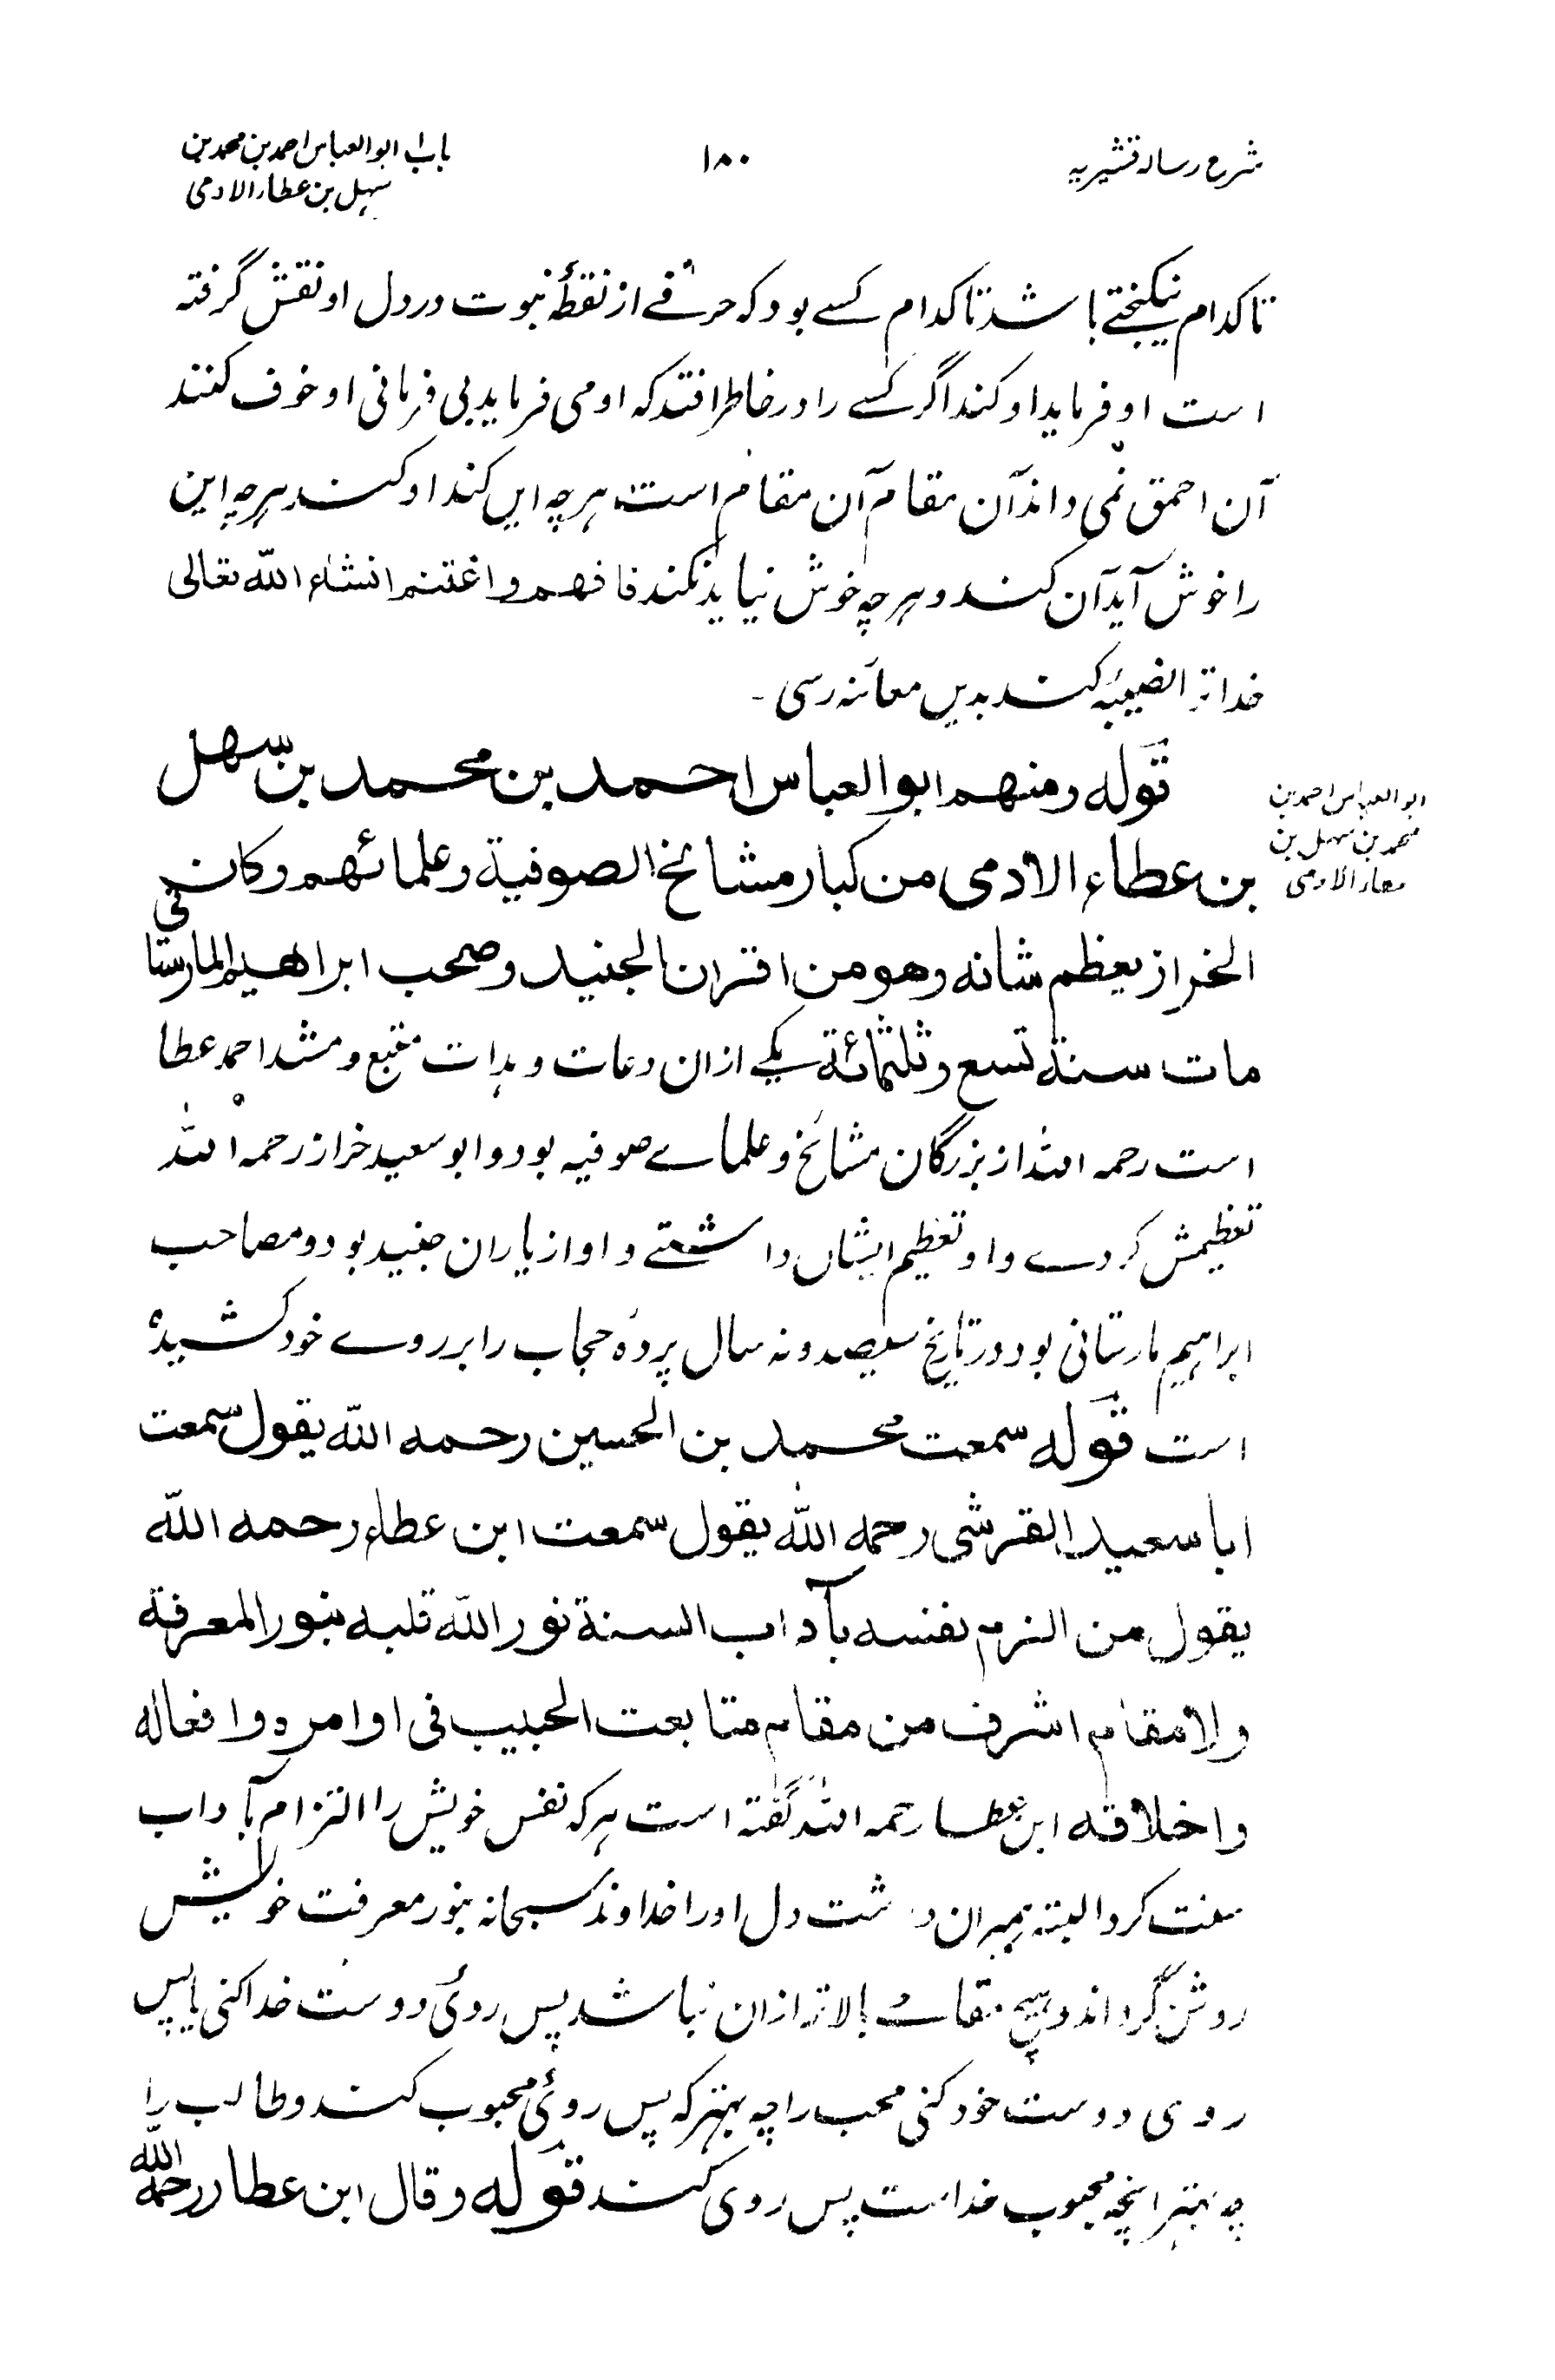 شرح رساله قشیریه
۱۸۰
باب ابوالعباس احمد بن محمد بن
سهل بن عطار الادمی
تا کدام نیکبختے باشد تا کدام کسے بود که حرفے از نقطۂ نبوت در دل او نقش گرفته
است او فرماید او کند اگر کسے را در خاطر افتد که او می فرماید بی فرمانی او خوف کنند
آن احمق نمی داند آن مقام آن مقام است، هرچه ایں کند او کند هرچه این
را خوش آید آن کند و هرچه خوش نیاید نکند فافهم واغتنم انشاء الله تعالی
خدا ترا نصیبۂ کند بدیں معائنه رسی -
قوله ومنهم ابو العباس احمد بن محمد بن سهل
بن عطاء الادمی من کبار مشائخ الصوفیة وعلمائهم وکان فی
ابوالعباس احمد بن
محمد بن سهل بن
عطار الادمی
الخراز یعظم شانه وهو من اقران الجنید وصحب ابراهیم المارستا
مات سنة تسع وثلثمائة یکے ازان دعات و هدات متبع و مشد احمد عطا
است رحمه الله از بزرگان مشائخ و علماے صوفیه بود و ابو سعید خراز رحمه الله
تعظیمش کردے و او تعظیم ایشاں داشتے و او از یاران جنید بود و مصاحب
ابراهیم مارستانی بود در تاریخ سیصد و نه سال پردۂ حجاب را بر روے خود کشیده
است قوله سمعت محمد بن الحسین رحمه الله یقول سمعت
ابا سعید القرشی رحمه الله یقول سمعت ابن عطاء رحمه الله
یقول من الزم نفسه بآداب السنة نور الله قلبه بنور المعرفة
ولا مقام اشرف من مقام متابعت الحبیب فی اوامره وافعاله
واخلاقه ابن عطا رحمه الله گفته است هرکه نفس خویش را التزام آداب
سنت کرد البته بمیران داشت دل او را خداوند سبحانه بنور معرفت خویش
روشن گرداند و هیچ مقامے بالاتر ازان نباشد پس روئ دوست خدا کنی یا پس
روی دوست خود کنی محب را چه بهتر که پس روئ محبوب کند و طالب را
چه بهتر انچه محبوب خداست پس روی کند قوله وقال ابن عطار رحمه الله